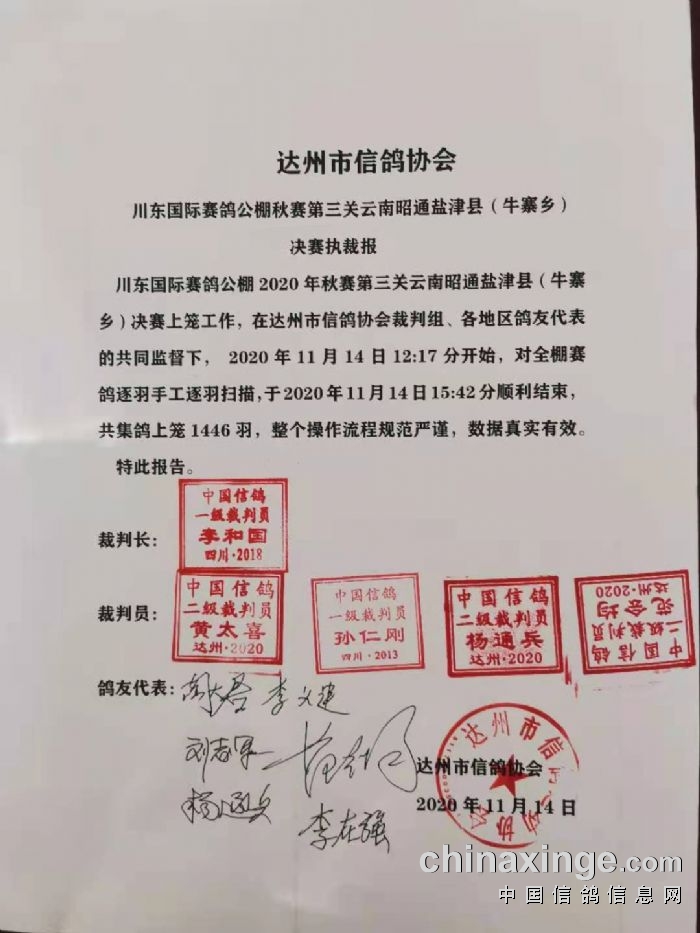 达州市信鸽协会
川东国际赛鸽公棚秋赛第三关云南昭通盐津县（牛寨乡）
决赛执裁报
川东国际赛鸽公棚 2020 年秋赛第三关云南昭通盐津县（牛寨
乡）决赛上笼工作，在达州市信鸽协会裁判组、各地区鸽友代表
的共同监督下， 2020 年 11 月 14 日 12:17 分开始，对全棚赛
鸽逐羽手工逐羽扫描，于 2020 年 11 月 14 日 15:42 分顺利结束，
共集鸽上笼 1446 羽，整个操作流程规范严谨，数据真实有效。
特此报告。
裁判长：
中国信鸽
一级裁判员
李和国
四川·2018
裁判员：
中国信鸽
二级裁判员
黄太喜
达州·2020
中国信鸽
一级裁判员
孙仁刚
四川·2013
中国信鸽
二级裁判员
杨通兵
达州·2020
中国信鸽
二级裁判员
达州·2020
鸽友代表：
李义建
刘志军
杨通兵
李在强
达州市信鸽协会
达州市信鸽协会
2020 年 11 月 14 日
chinaxinge.com
中国信鸽信息网